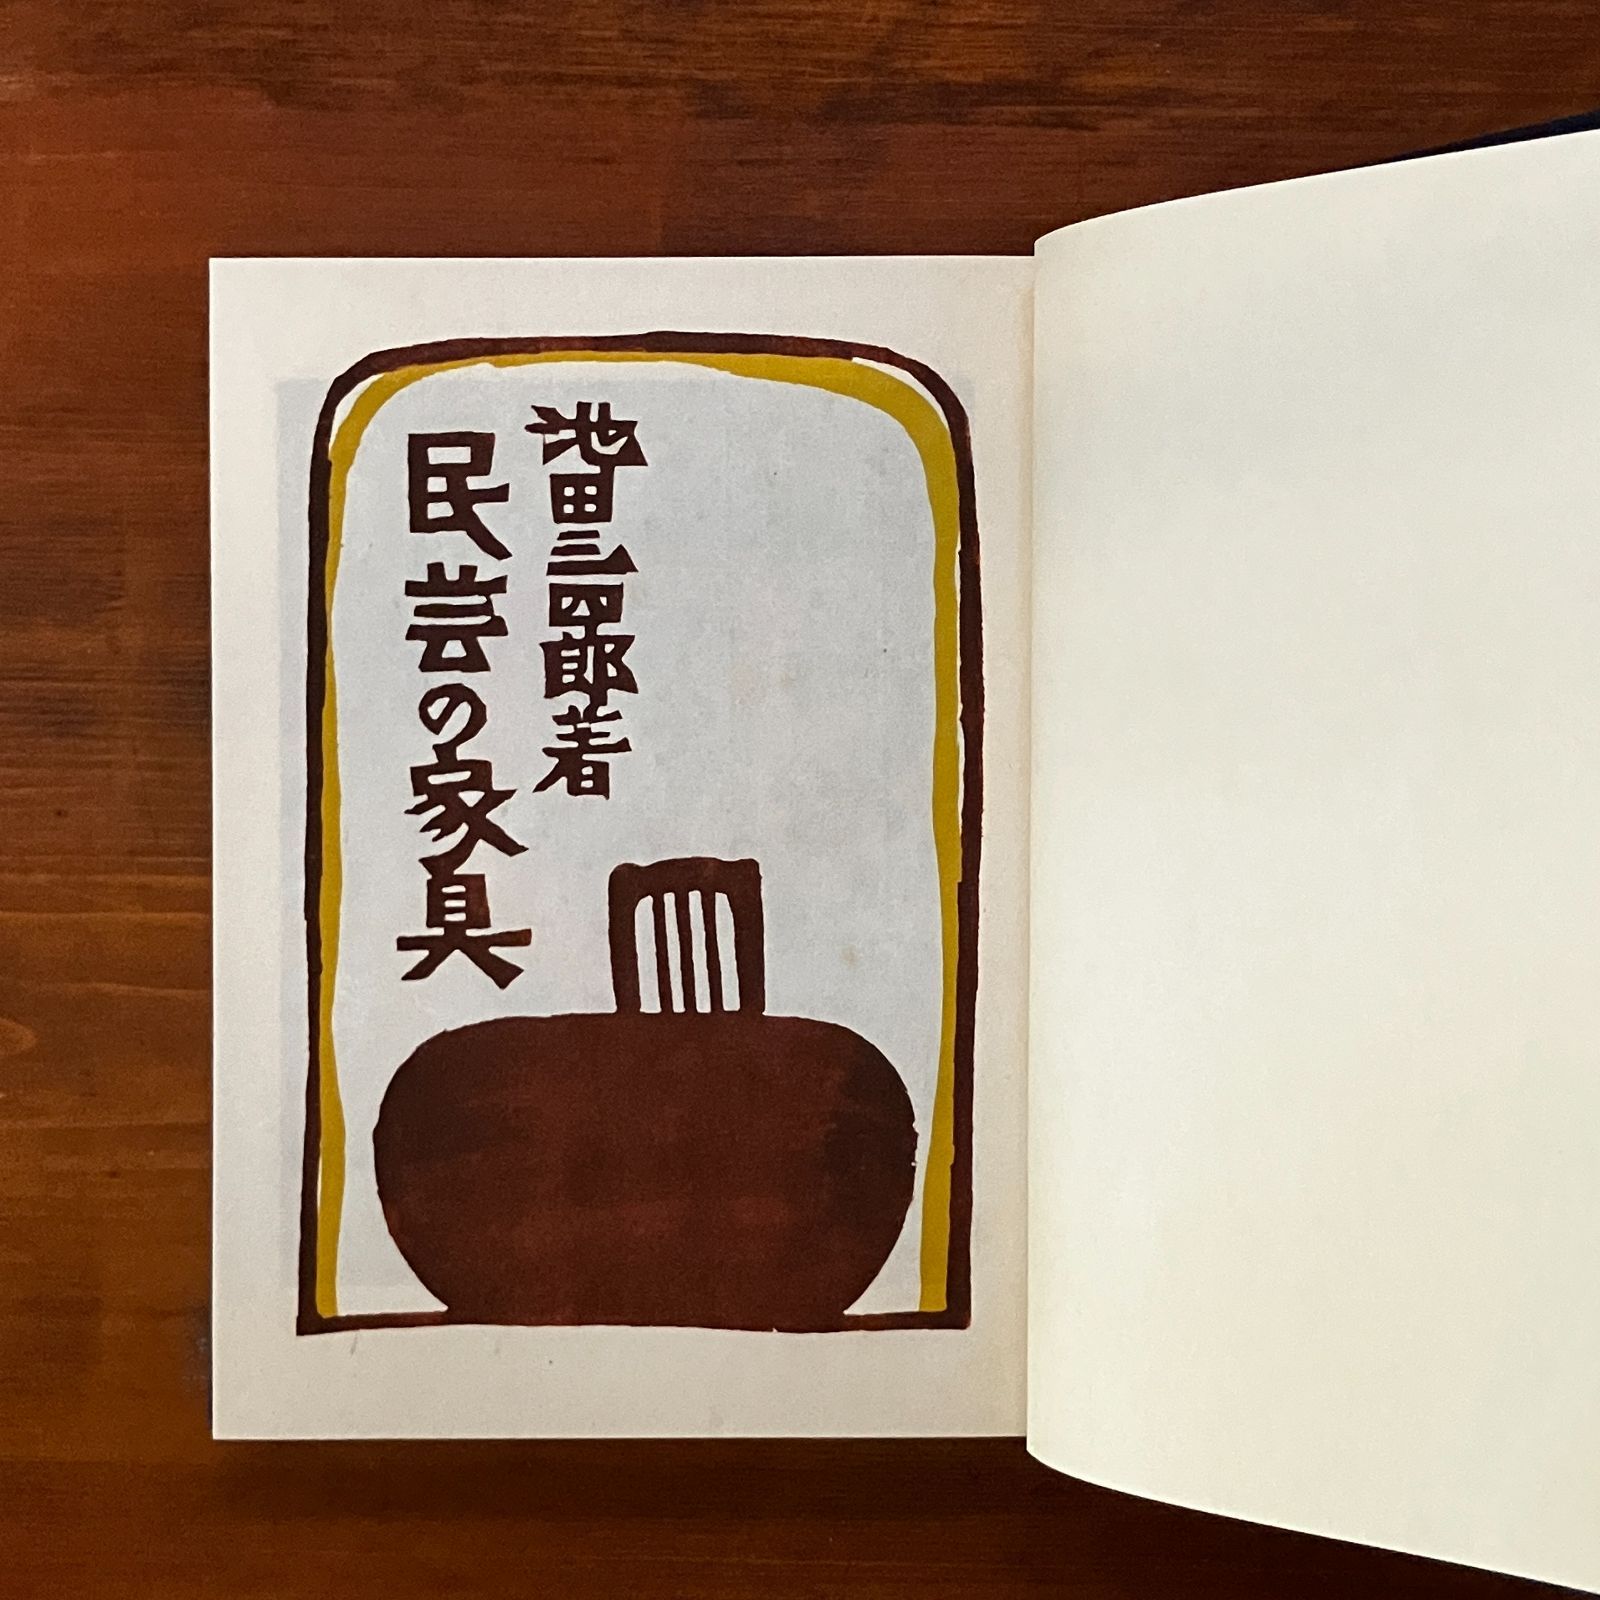 池田三四郎著
民芸の家具